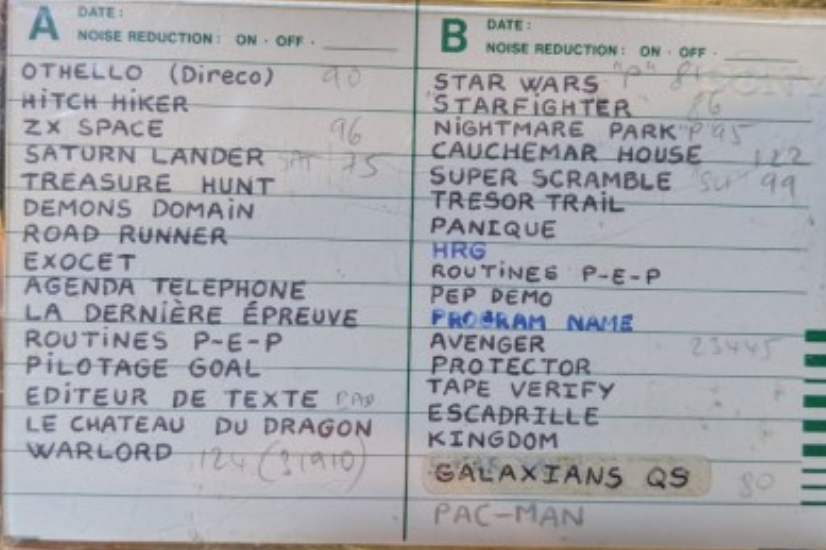 A DATE:
NOISE REDUCTION: ON · OFF ·
OTHELLO (Direco) 90
HITCH HIKER
ZX SPACE 96
SATURN LANDER 75
TREASURE HUNT
DEMONS DOMAIN
ROAD RUNNER
EXOCET
AGENDA TELEPHONE
LA DERNIÈRE ÉPREUVE
ROUTINES P-E-P
PILOTAGE GOAL
EDITEUR DE TEXTE
LE CHATEAU DU DRAGON
WARLORD 124 (31910)
B DATE:
NOISE REDUCTION: ON · OFF ·
STAR WARS "P" 81
"STARFIGHTER" 86
NIGHTMARE PARK "P" 95
CAUCHEMAR HOUSE 122
SUPER SCRAMBLE 99
TRESOR TRAIL
PANIQUE
HRG
ROUTINES P-E-P
PEP DEMO
PROGRAM NAME
AVENGER 23445
PROTECTOR
TAPE VERIFY
ESCADRILLE
KINGDOM
GALAXIANS QS 80
PAC-MAN